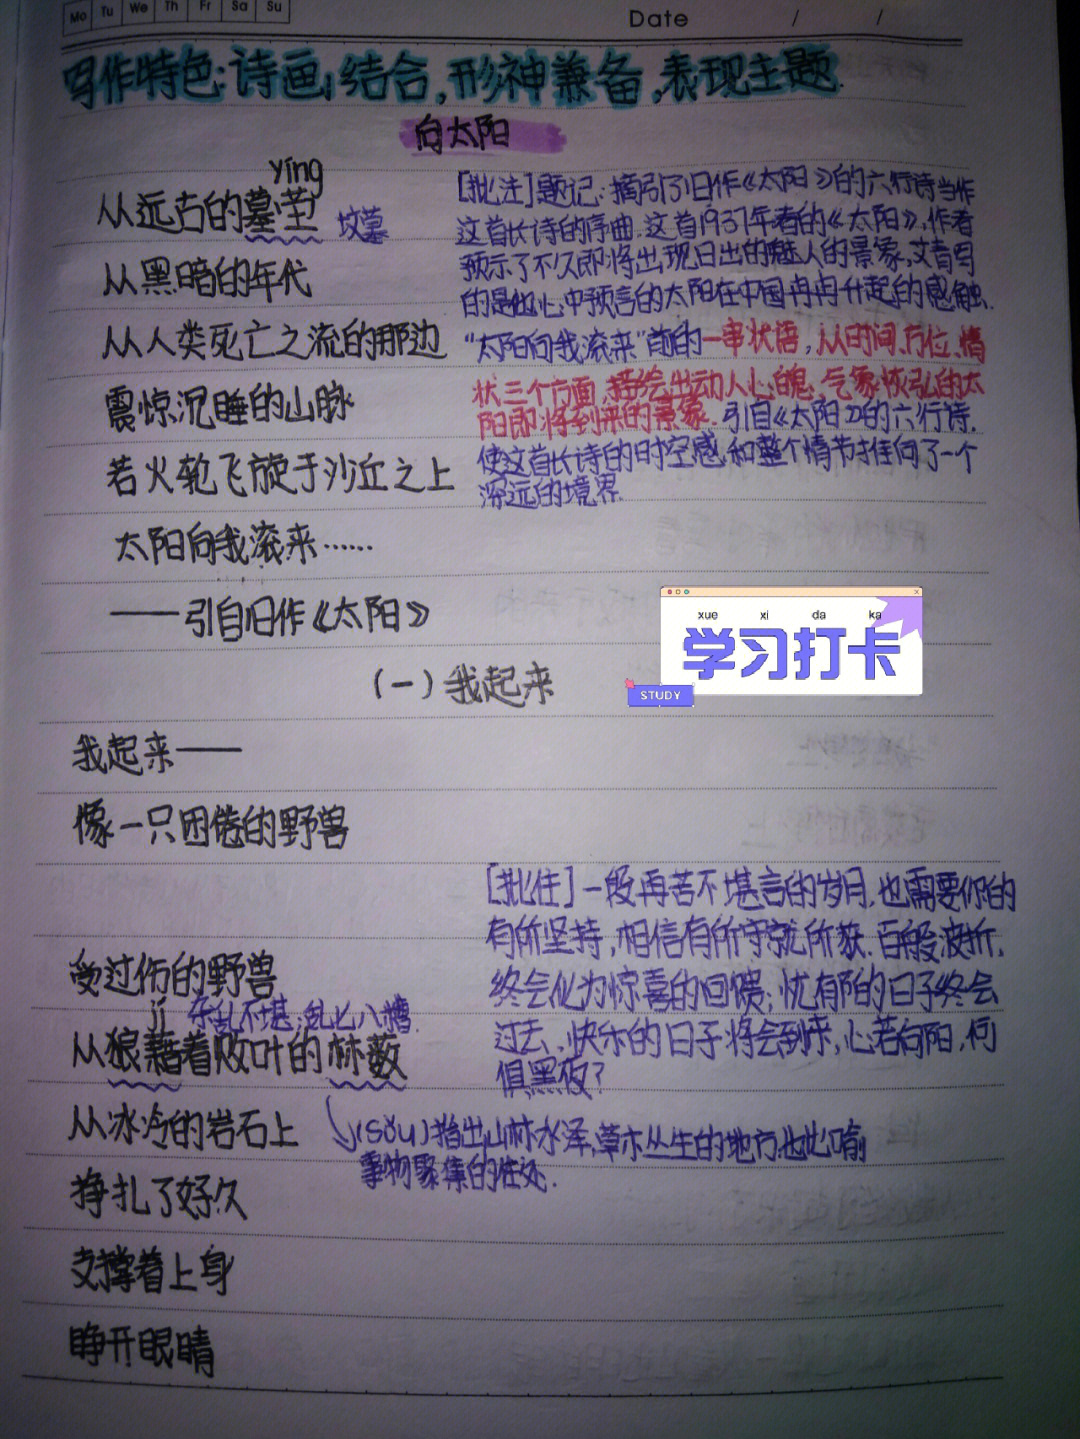 Mo Tu We Th Fr Sa Su
Date / /
写作特色:诗画结合,形神兼备,表现主题.
向太阳
yíng
从远古的墓茔
坟墓
从黑暗的年代
从人类死亡之流的那边
震惊沉睡的山脉
若火轮飞旋于沙丘之上
太阳向我滚来……
——引自旧作《太阳》
[批注]题记:摘引了旧作《太阳》的六行诗当作
这首长诗的序曲.这首1937年春的《太阳》,作者
预示了不久即将出现日出的魅人的景象,艾青写
的是他心中预言的太阳在中国冉冉升起的感触.
“太阳向我滚来”前的一串状语,从时间、方位、情
状三个方面,描绘出动人心魄、气象恢弘的太
阳即将到来的景象.引自《太阳》的六行诗,
使这首长诗的时空感和整个情节推向了一个
深远的境界.
xue xi da ka
学习打卡
STUDY
(一)我起来
我起来——
像一只困倦的野兽
受过伤的野兽
jí 杂乱不堪;乱七八糟.
从狼藉着败叶的林薮
从冰冷的岩石上
挣扎了好久
支撑着上身
睁开眼睛
[批住]一段再苦不堪言的岁月,也需要你的
有所坚持,相信有所守就所获.百般波折,
终会化为惊喜的回馈;忧有郁的日子终会
过去,快乐的日子将会到来,心若向阳,何
惧黑夜?
(sǒu)指出山林水泽,草木丛生的地方,也比喻
事物聚集的住处.